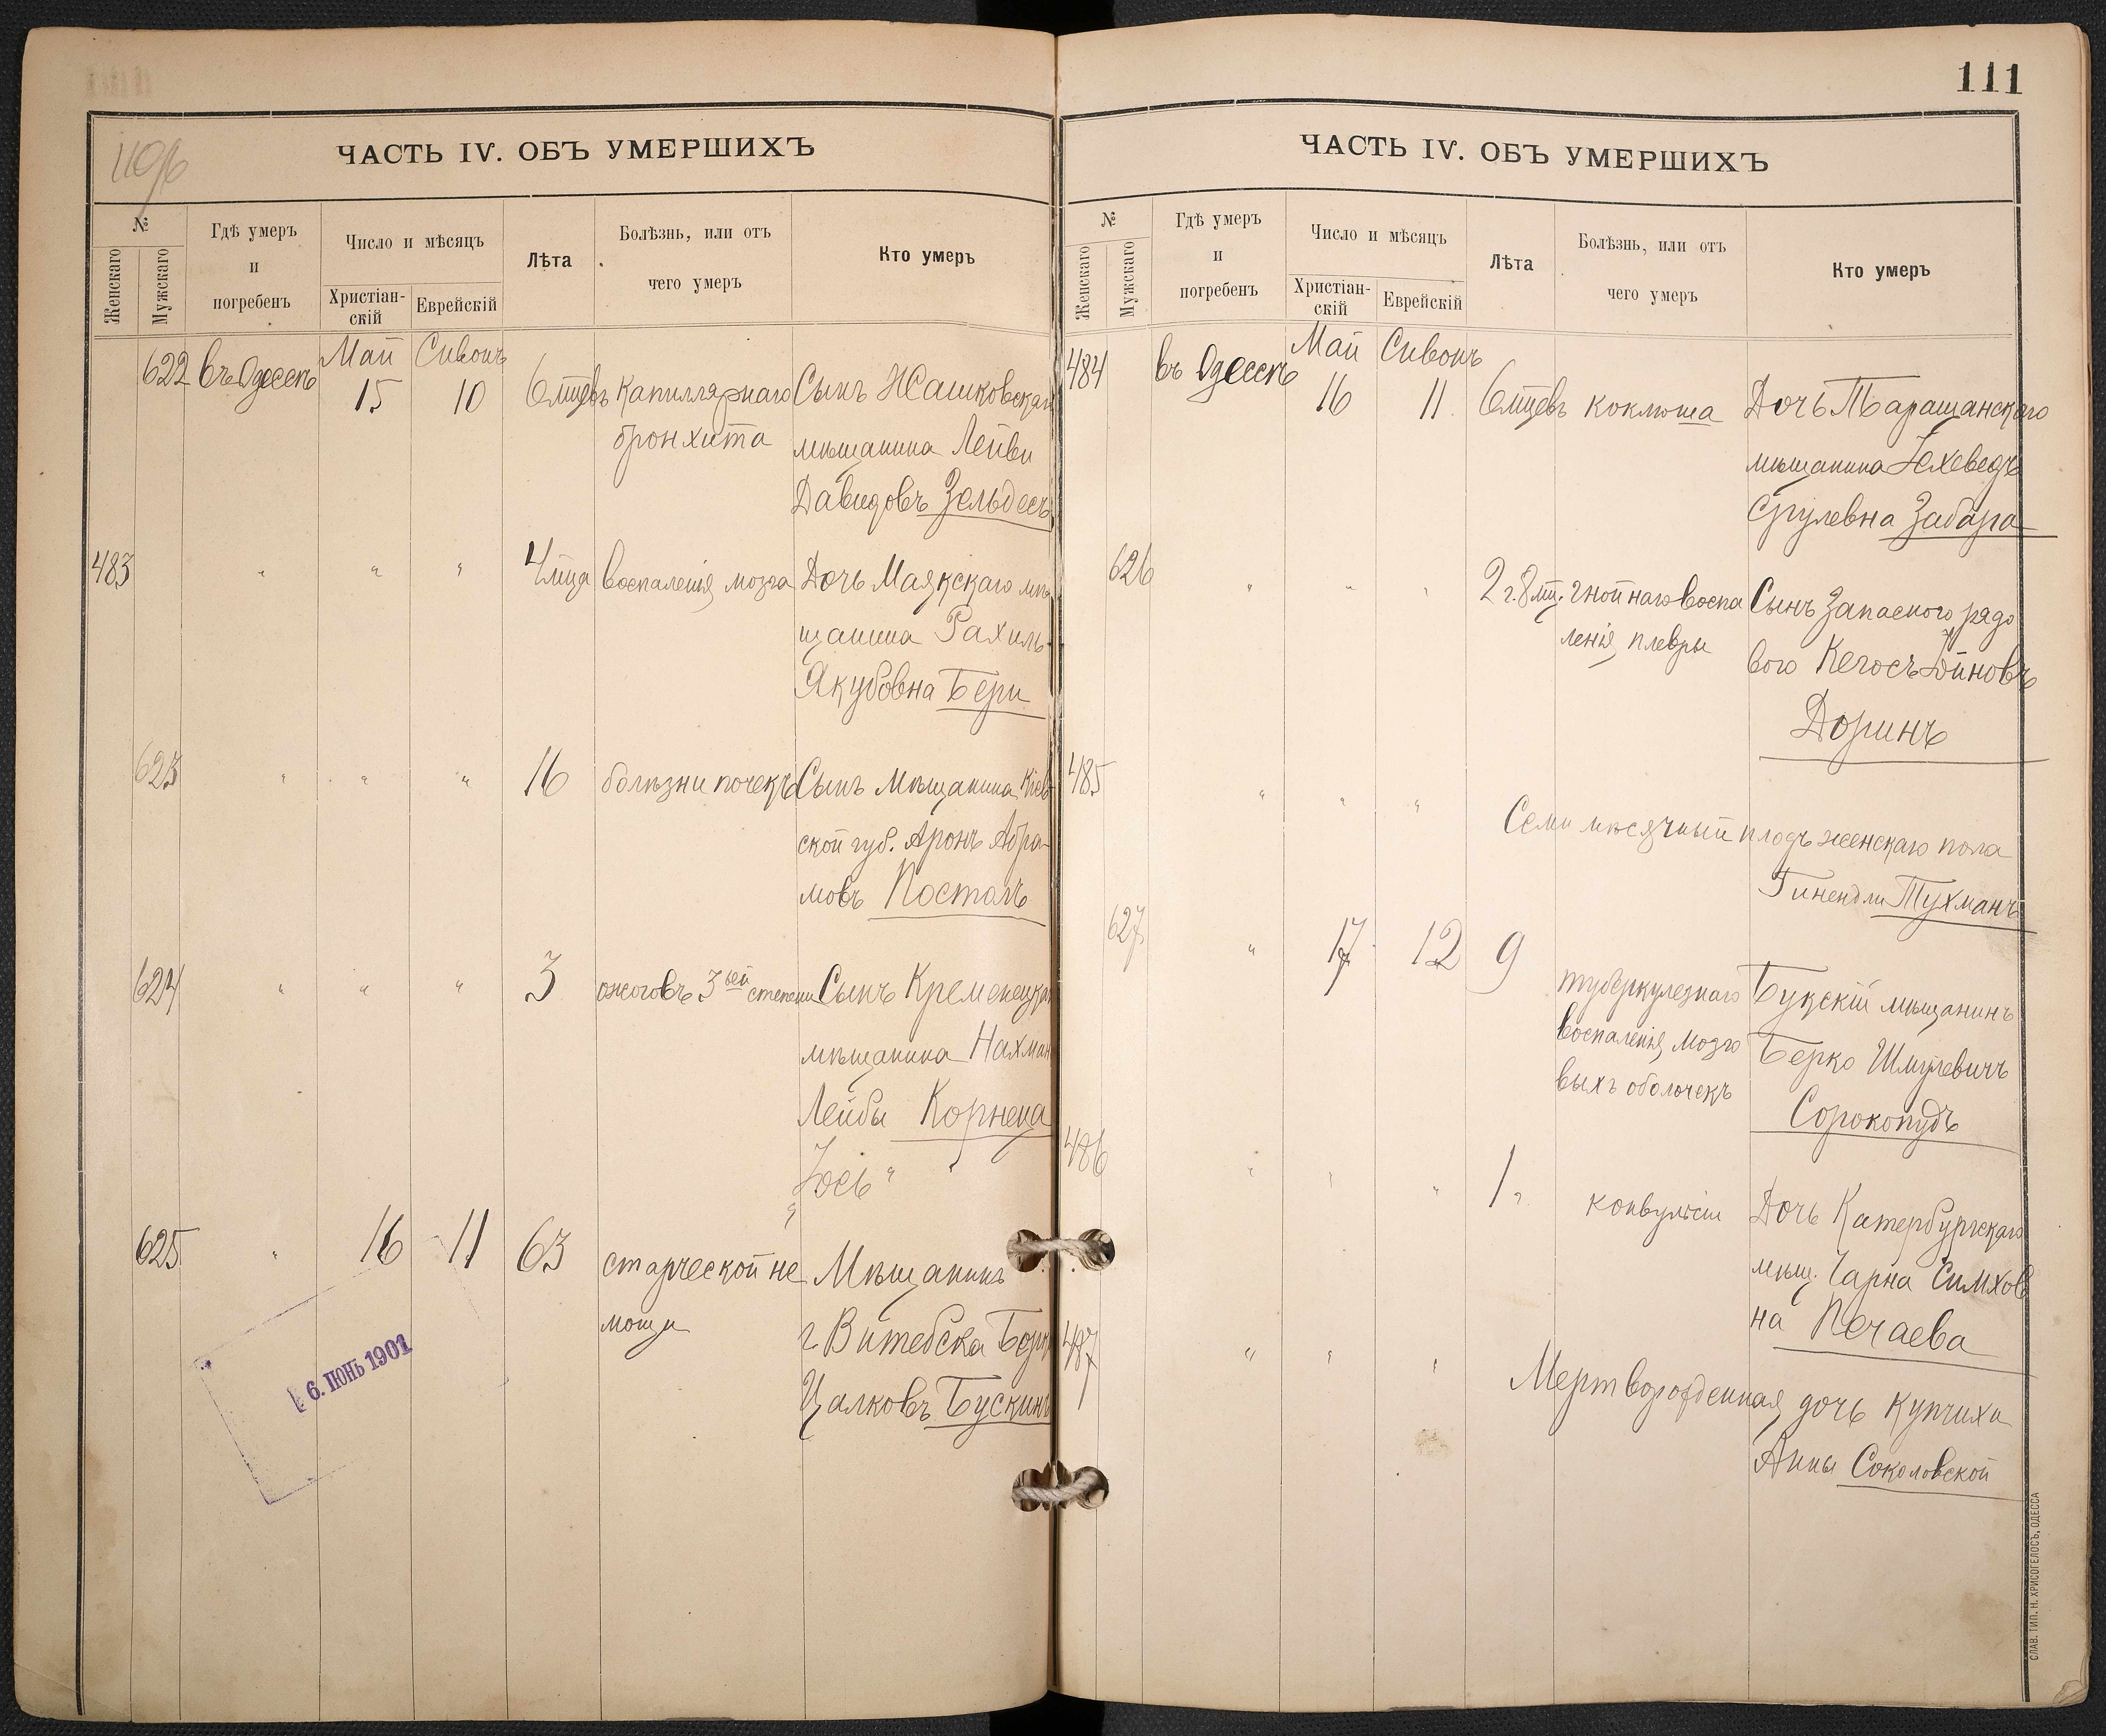 110/6
ЧАСТЬ IV. ОБЪ УМЕРШИХЪ
№
Женскаго
Мужскаго
Гдѣ умеръ
и
погребенъ
Число и мѣсяцъ
Христіан-
скій
Еврейскій
Лѣта
Болѣзнь, или отъ
чего умеръ
Кто умеръ
622 въ Одессѣ Май 15 Сивонъ 10 6 мцевъ Капиллярнаго
бронхита
Сынъ Жашковскаго
мѣщанина Лейви
Давидовъ Зельдесъ
483 " " " 4 мца воспаленія мозга
Дочь Маякскаго мѣ
щанина Рахиль
Якубовна Бери
623 " " " 16 болѣзни почекъ
Сынъ Мѣщанина Кіев
ской губ. Аронъ Абра-
мовъ Посталъ
624 " " " 3 ожоговъ 3ьей степени
Сынъ Кременецкаго
мѣщанина Нахман
Лейбы Корнеца
Юсь "
625 " 16 11 63 старческой не
мощи
Мѣщанинъ
г Витебска Борух
Цалковъ Бускинъ
6. ІЮНЬ 1901
111
ЧАСТЬ IV. ОБЪ УМЕРШИХЪ
№
Женскаго
Мужскаго
Гдѣ умеръ
и
погребенъ
Число и мѣсяцъ
Христіан-
скій
Еврейскій
Лѣта
Болѣзнь, или отъ
чего умеръ
Кто умеръ
484 въ Одессѣ Май 16 Сивонъ 11 6 мцевъ коклюша
Дочь Таращанскаго
мѣщанина Юхеведъ
Срулевна Забара
626 " " " 2 г. 8 мц. гнойнаго воспа
ленія плевры
Сынъ Запасного рядо
вого Кегосъ Дйновъ
Доринъ
485 " " "
Семи мѣсячный плодъ женскаго пола
Гинендли Тухманъ
627 " 17 12 9 туберкулезнаго
воспаленія мозго
выхъ оболочекъ
Букскій мѣщанинъ
Берко Шмулевичъ
Сорокопудъ
486 " " " 1 г. конвульсіи
Дочь Катербургскаго
мѣщ. Чарна Симхов
на Печаева
487 " " "
Мертворожденная дочь купчихи
Анны Соколовской
СЛАВ. ТИП. Н. ХРИСОГЕЛОСЪ, ОДЕССА